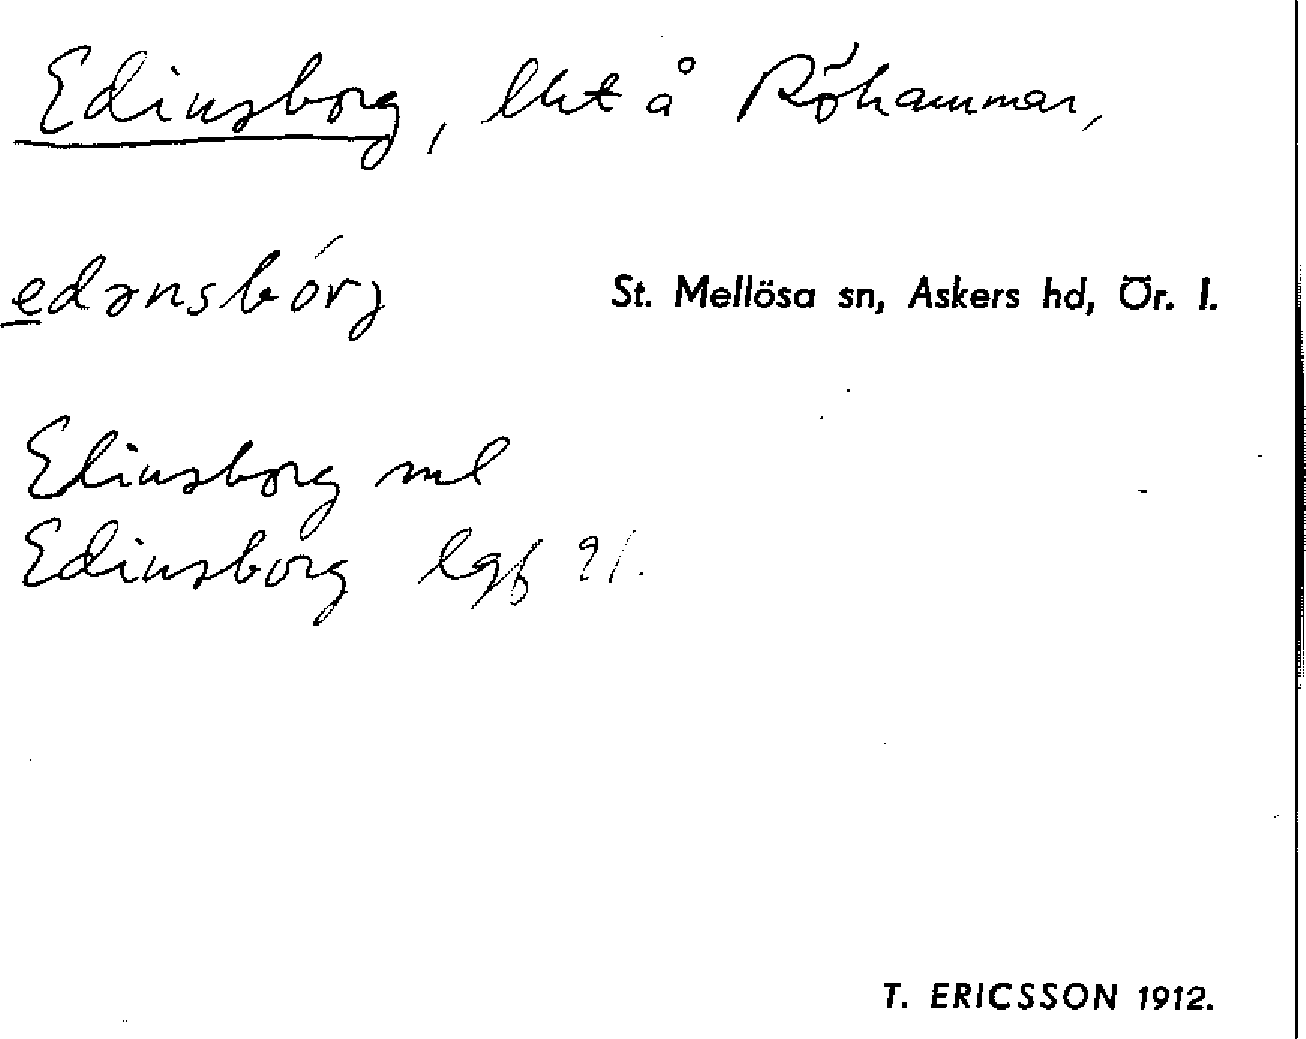 Edinsborg, lht å Röhammar,
edənsbórj St. Mellösa sn, Askers hd, Ör. l.
Edinsborg ml
Edinsborg lgf
T. ERICSSON 1912.